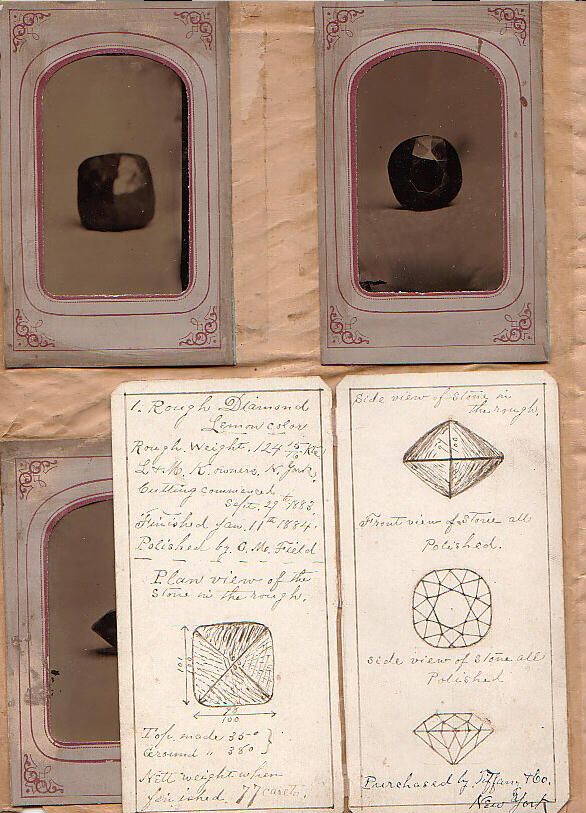 1. Rough Diamond
Lemon color
Rough Weight. 124 15/16 Kts
L & M. K. owners, N. York.
Cutting commenced
Sept. 29th 1883.
Finished Jan. 11th 1884.
Polished by C. M. Field
Plan view of the
Stone in the rough.
100
100
Top, made 35°
Ground " 38°
Nett weight when
finished, 77 carets.
Side view of Stone in
the rough.
100
Front view of Stone all
Polished.
Side view of Stone all
Polished
Purchased by Tiffany & Co.
New York